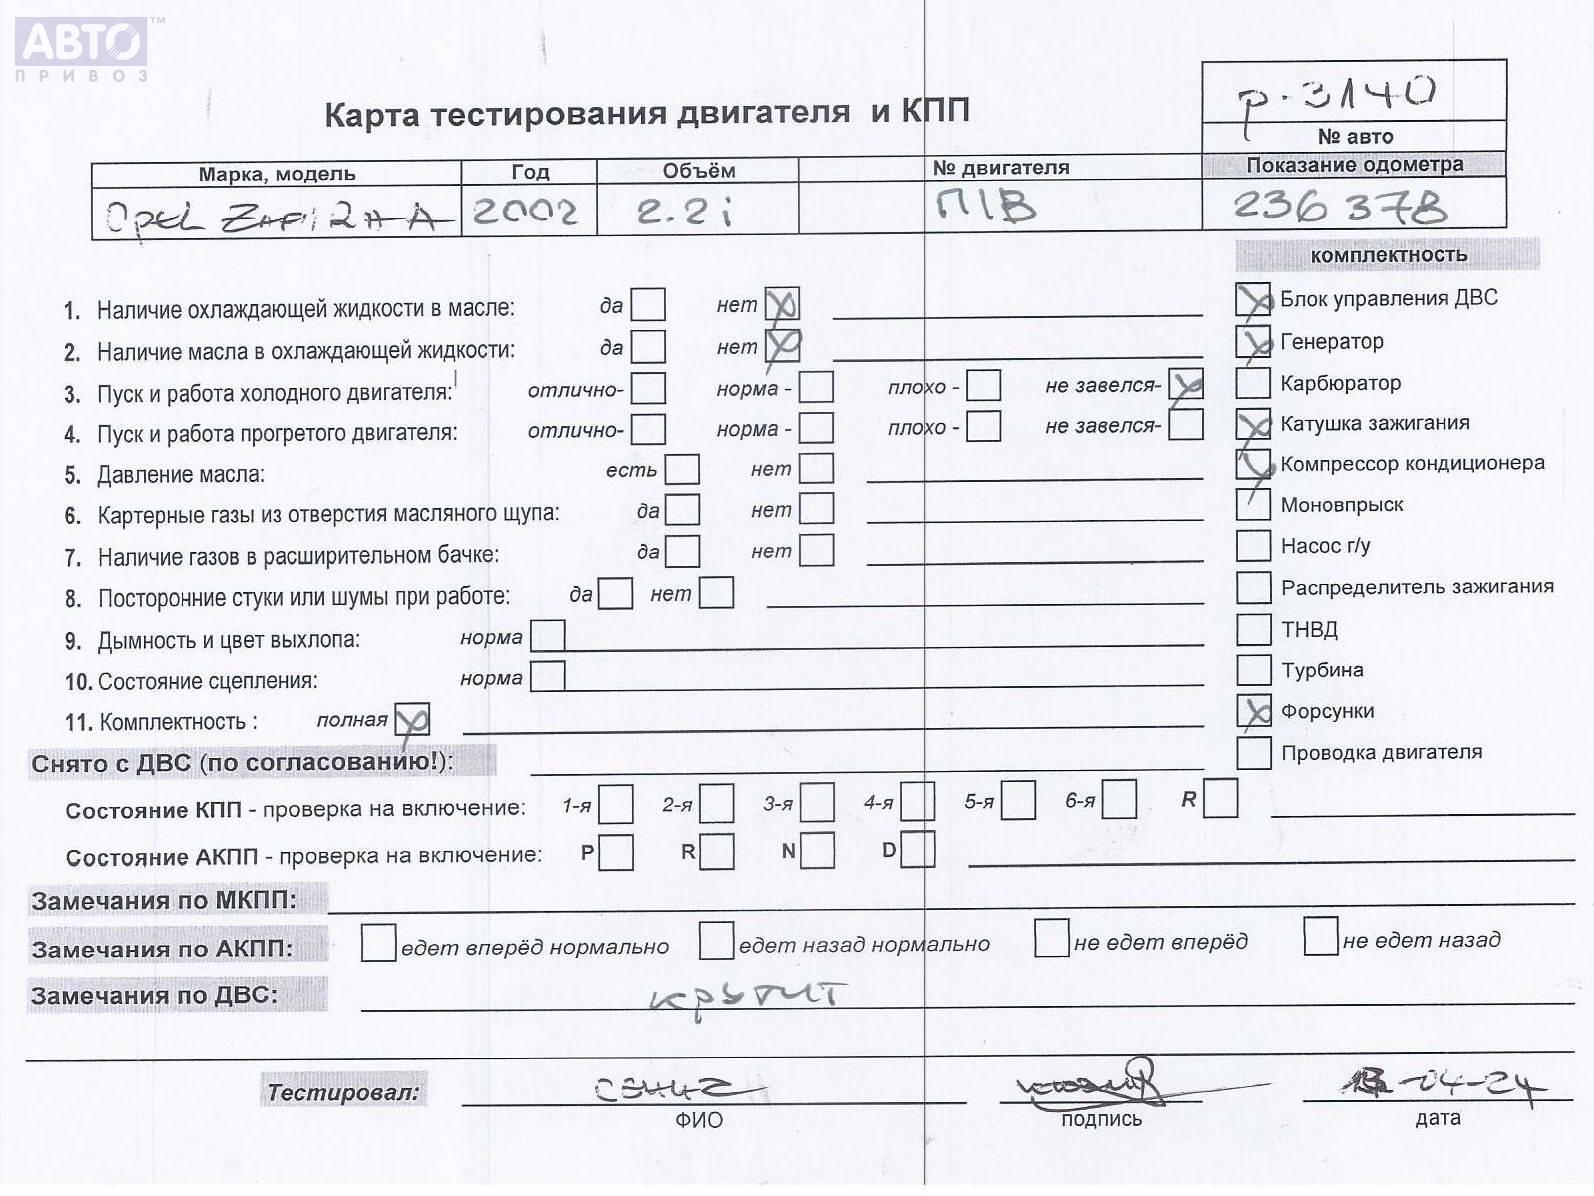 АВТО™
ПРИВОЗ
Карта тестирования двигателя и КПП
р-3140
№ авто
Марка, модель Год Объём № двигателя Показание одометра
Opel Zafira A 2002 2.2i П1В 236378
комплектность
1. Наличие охлаждающей жидкости в масле: да нет
Блок управления ДВС
2. Наличие масла в охлаждающей жидкости: да нет
Генератор
3. Пуск и работа холодного двигателя: отлично- норма - плохо - не завелся-
Карбюратор
4. Пуск и работа прогретого двигателя: отлично- норма - плохо - не завелся-
Катушка зажигания
5. Давление масла: есть нет
Компрессор кондиционера
6. Картерные газы из отверстия масляного щупа: да нет
Моновпрыск
7. Наличие газов в расширительном бачке: да нет
Насос г/у
8. Посторонние стуки или шумы при работе: да нет
Распределитель зажигания
9. Дымность и цвет выхлопа: норма
ТНВД
10. Состояние сцепления: норма
Турбина
11. Комплектность : полная
Форсунки
Снято с ДВС (по согласованию!):
Проводка двигателя
Состояние КПП - проверка на включение: 1-я 2-я 3-я 4-я 5-я 6-я R
Состояние АКПП - проверка на включение: P R N D
Замечания по МКПП:
Замечания по АКПП: едет вперёд нормально едет назад нормально не едет вперёд не едет назад
Замечания по ДВС: крутит
Тестировал: -04-24
ФИО подпись дата